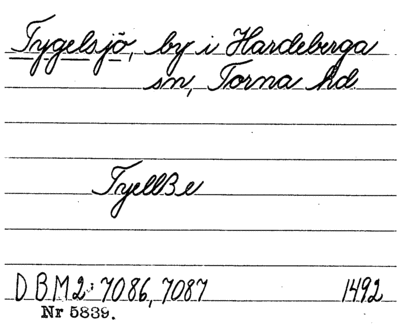 Tygelsjö, by i Hardeberga
sn, Torna hd
Tyellße
DBM2: 7086, 7087 1492
Nr 5839.